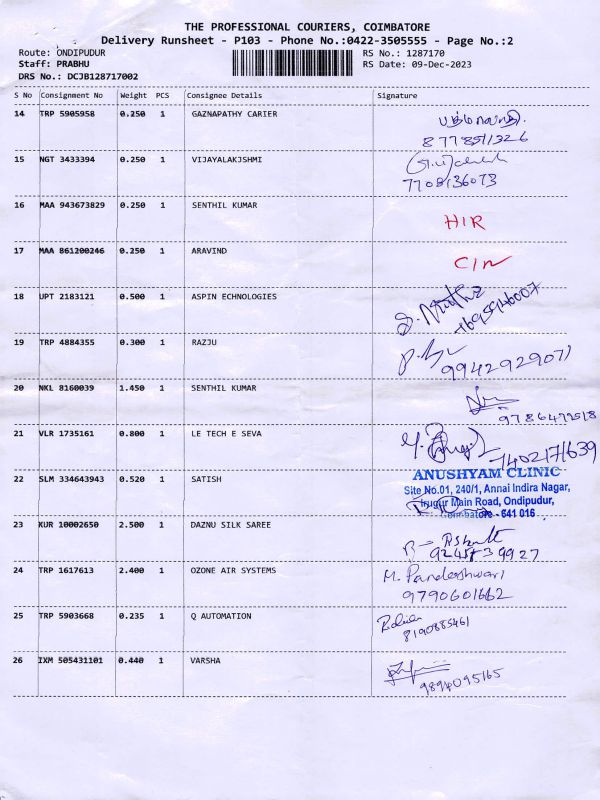 THE PROFESSIONAL COURIERS, COIMBATORE
Delivery Runsheet - P103 - Phone No.:0422-3505555 - Page No.:2
Route: ONDIPUDUR
RS No.: 1287170
Staff: PRABHU
RS Date: 09-Dec-2023
DRS No.: DCJB128717002
S No Consignment No Weight PCS Consignee Details Signature
14 TRP 5905958 0.250 1 GAZNAPATHY CARIER
8778511326
15 NGT 3433394 0.250 1 VIJAYALAKJSHMI
7708136073
16 MAA 943673829 0.250 1 SENTHIL KUMAR HIR
17 MAA 861200246 0.250 1 ARAVIND
18 UPT 2183121 0.500 1 ASPIN ECHNOLOGIES
19 TRP 4884355 0.300 1 RAZJU
9942929071
20 NKL 8160039 1.450 1 SENTHIL KUMAR
21 VLR 1735161 0.800 1 LE TECH E SEVA
7402171639
22 SLM 334643943 0.520 1 SATISH
ANUSHYAM CLINIC
Site No.01, 240/1, Annai Indira Nagar,
Irugur Main Road, Ondipudur,
Coimbatore - 641 016
23 KUR 10002650 2.500 1 DAZNU SILK SAREE
24 TRP 1617613 2.400 1 OZONE AIR SYSTEMS M. Pandeshwari
9790601662
25 TRP 5903668 0.235 1 Q AUTOMATION
8190885461
26 IXM 505431101 0.440 1 VARSHA
9894095165